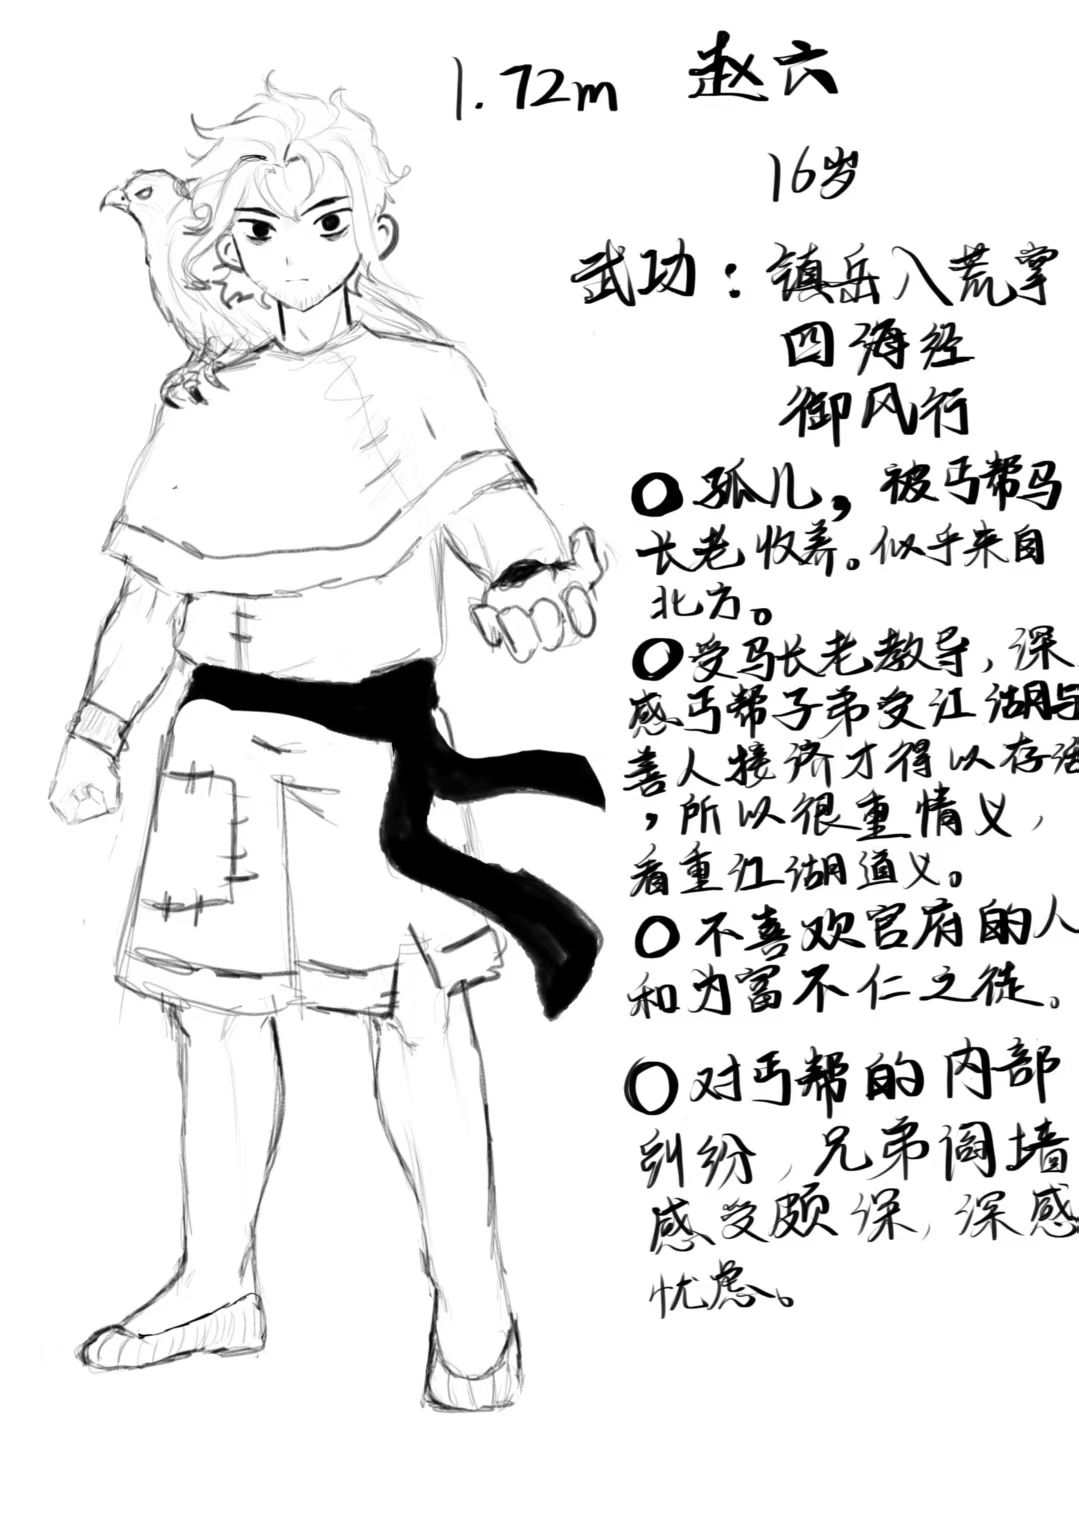 1.72m 赵六
16岁
武功：镇岳八荒掌
四海经
御风行
○孤儿，被丐帮马
长老收养。似乎来自
北方。
○受马长老教导，深
感丐帮子弟受江湖与
善人接济才得以存活
，所以很重情义，
看重江湖道义。
○不喜欢官府的人
和为富不仁之徒。
○对丐帮的内部
纠纷，兄弟阋墙
感受颇深，深感
忧虑。